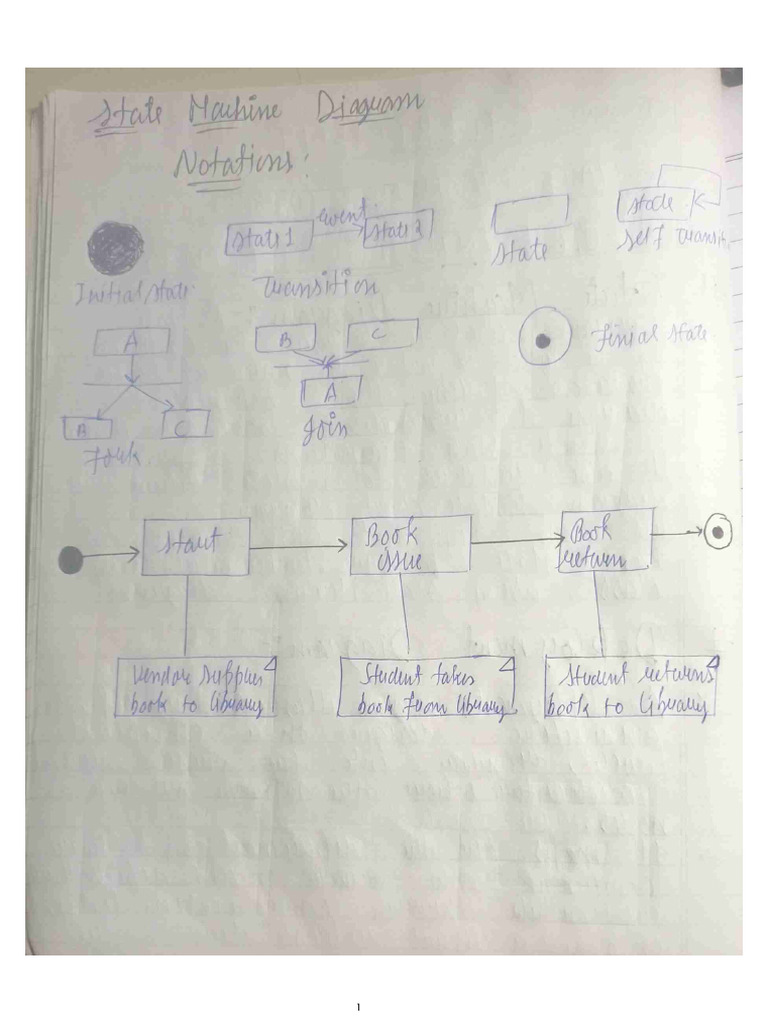 State Machine Diagram
Notations:
State 1
event
State 2
State
State
Self transit
Initial state
Transition
A
B
C
Fork
B
C
A
Join
Finial state
Start
Book
issue
Book
return
Vendor supplies
book to library
Student takes
book from library
Student returns
book to library
1